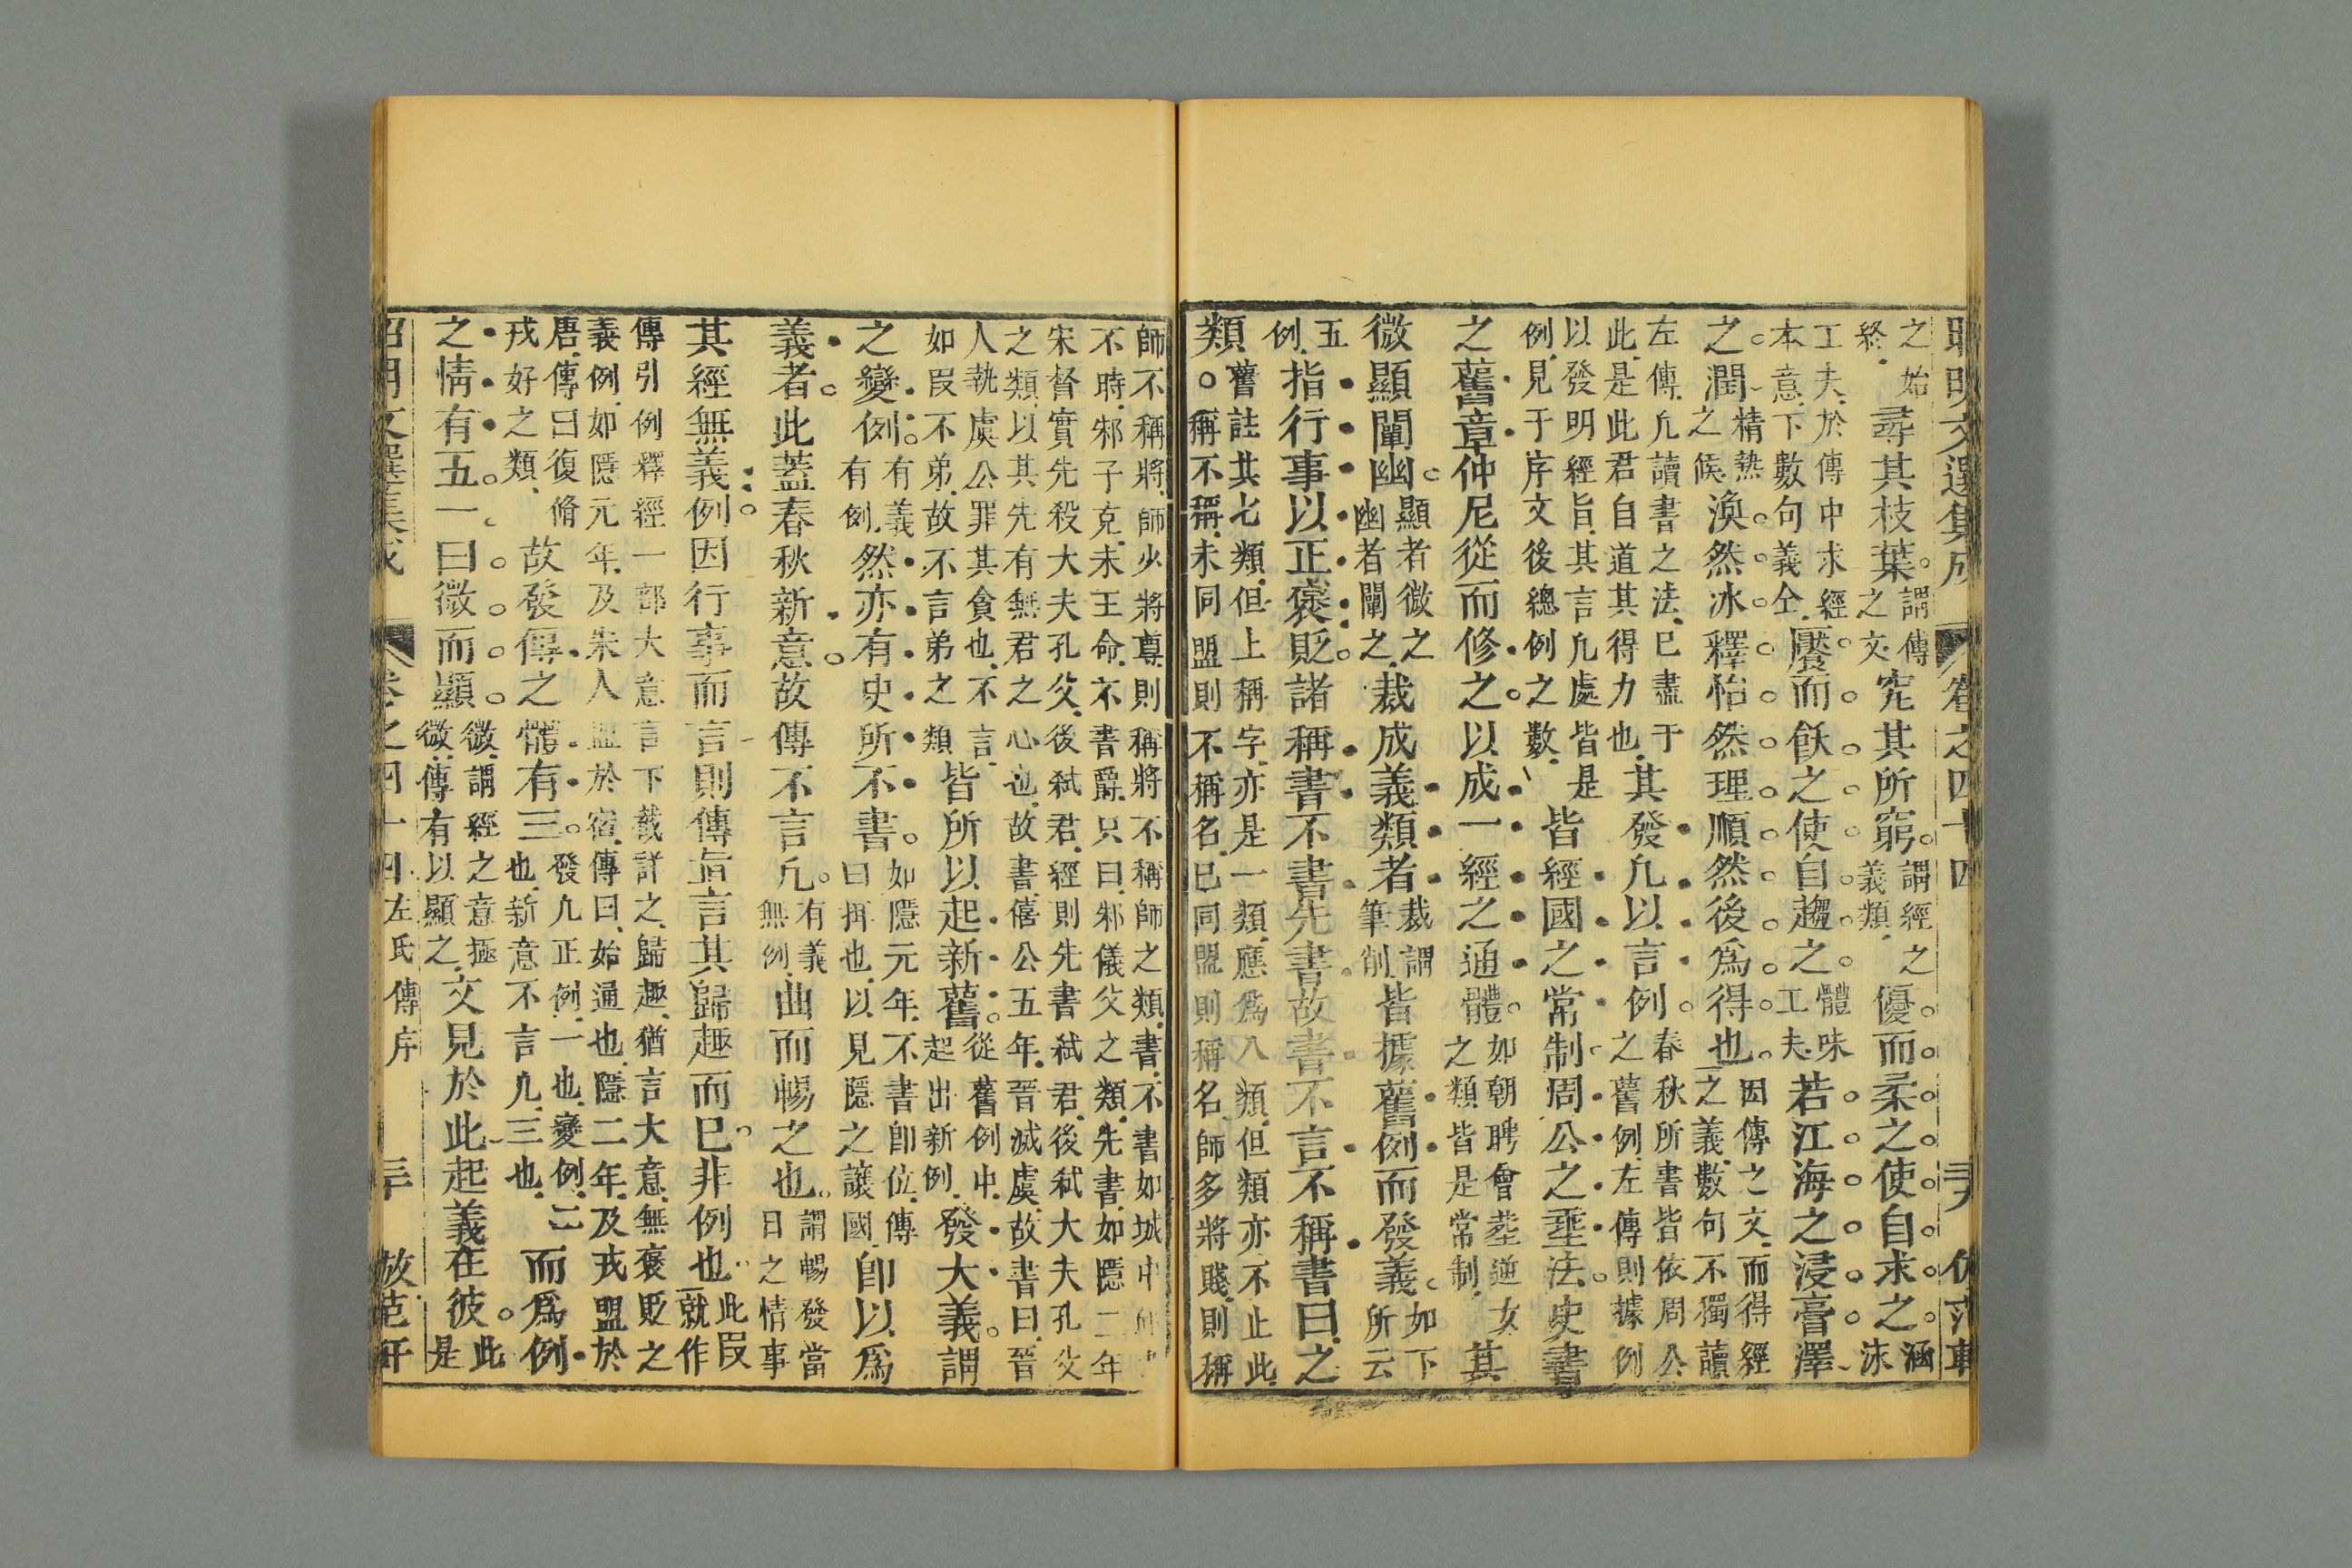 昭明文選集成
卷之四十四
之始
終
尋其枝葉。
謂傳
之文
究其所窮。
謂經之
義類
優而柔之使自求之。
涵
泳
工夫於傳中求經
本意下數句義仝
饜而飫之使自趨之。
體味
工夫
若江海之浸膏澤
之潤
精熟
之候
渙然冰釋怡然理順然後爲得也。
因傳之文而得經
之義數句不獨讀
左傳凡讀書之法已盡于
此是此君自道其得力也
其發凡以言例。
春秋所書皆依周公
之舊例左傳則據例
以發明經旨其言凡處皆是
例見于序文後總例之數
皆經國之常制周公之垂法。史書
之舊章仲尼從而修之。以成一經之通體。
如朝聘會葬逆女
之類皆是常制
其
微顯闡幽。
顯者微之
幽者闡之
裁成義類者
裁謂
筆削
皆據舊例而發義。
如下
所云
五
例
指行事以正褒貶。諸稱書不書先書故書不言不稱書曰之
類。
舊註其七類但上稱字亦是一類應爲八類但類亦不止此
稱不稱未同盟則不稱名已同盟則稱名師多將賤則稱
師不稱將師少將尊則稱將不稱師之類書不書如城中
不時邾子克未王命不書爵只曰邾儀父之類先書如隱二年
宋督實先殺大夫孔父後弒君經則先書弒君後弒大夫孔父
之類以其先有無君之心也故書僖公五年晉滅虞故書曰晉
人執虞公罪其貪也不言
如段不弟故不言弟之類
皆所以起新舊。
從舊例中
起出新例
發大義。謂
之變例。
有義
有例
然亦有史所不書。
如隱元年不書卽位傳
曰攝也以見隱之讓國
卽以爲
義者。此蓋春秋新意。故傳不言凡。
有義
無例
曲而暢之也。
謂暢發當
日之情事
其經無義例。因行事而言則傳直言其歸趣而已非例也
此段
就作
傳引例釋經一部大意言下截詳之歸趣猶言大意無褒貶之
義例如隱元年及宋人盟於宿傳曰始通也隱二年及戎盟於
唐傳曰復脩
戎好之類
故發傳之體有三。
發凡正例一也變例二
也新意不言凡三也
而爲例
之情有五。一曰微而顯。
微謂經之意極
微傳有以顯之
文見於此起義在彼。
此
是
昭明文選集成
卷之四十四
左氏傳序